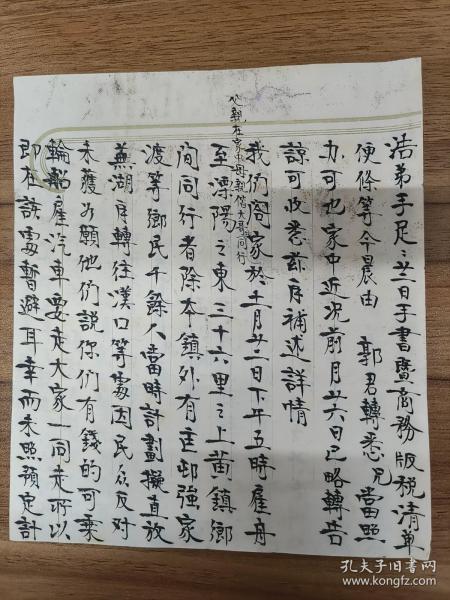 浩弟手足：廿一日手書暨商務版稅清單
便條等今晨由　郭君轉悉兄當照
办可也家中近况前月廿六日已略轉告
諒可收悉茲再補述詳情
我們閤家於十一月廿二日下午五時雇舟
父親在家中毋親偕大哥同行
至溧陽之東三十六里之上黄鎮鄉
间同行者除本鎮外有庄邨強家
渡等鄉民千餘人當時計劃擬直放
蕪湖再轉往漢口等處因民众反对
未獲如願他們說你們有錢的可乘
輪船雇汽車要走大家一同走所以
即在該處暫避耳幸而未照預定計
孔夫子旧书网
www.kongfz.com